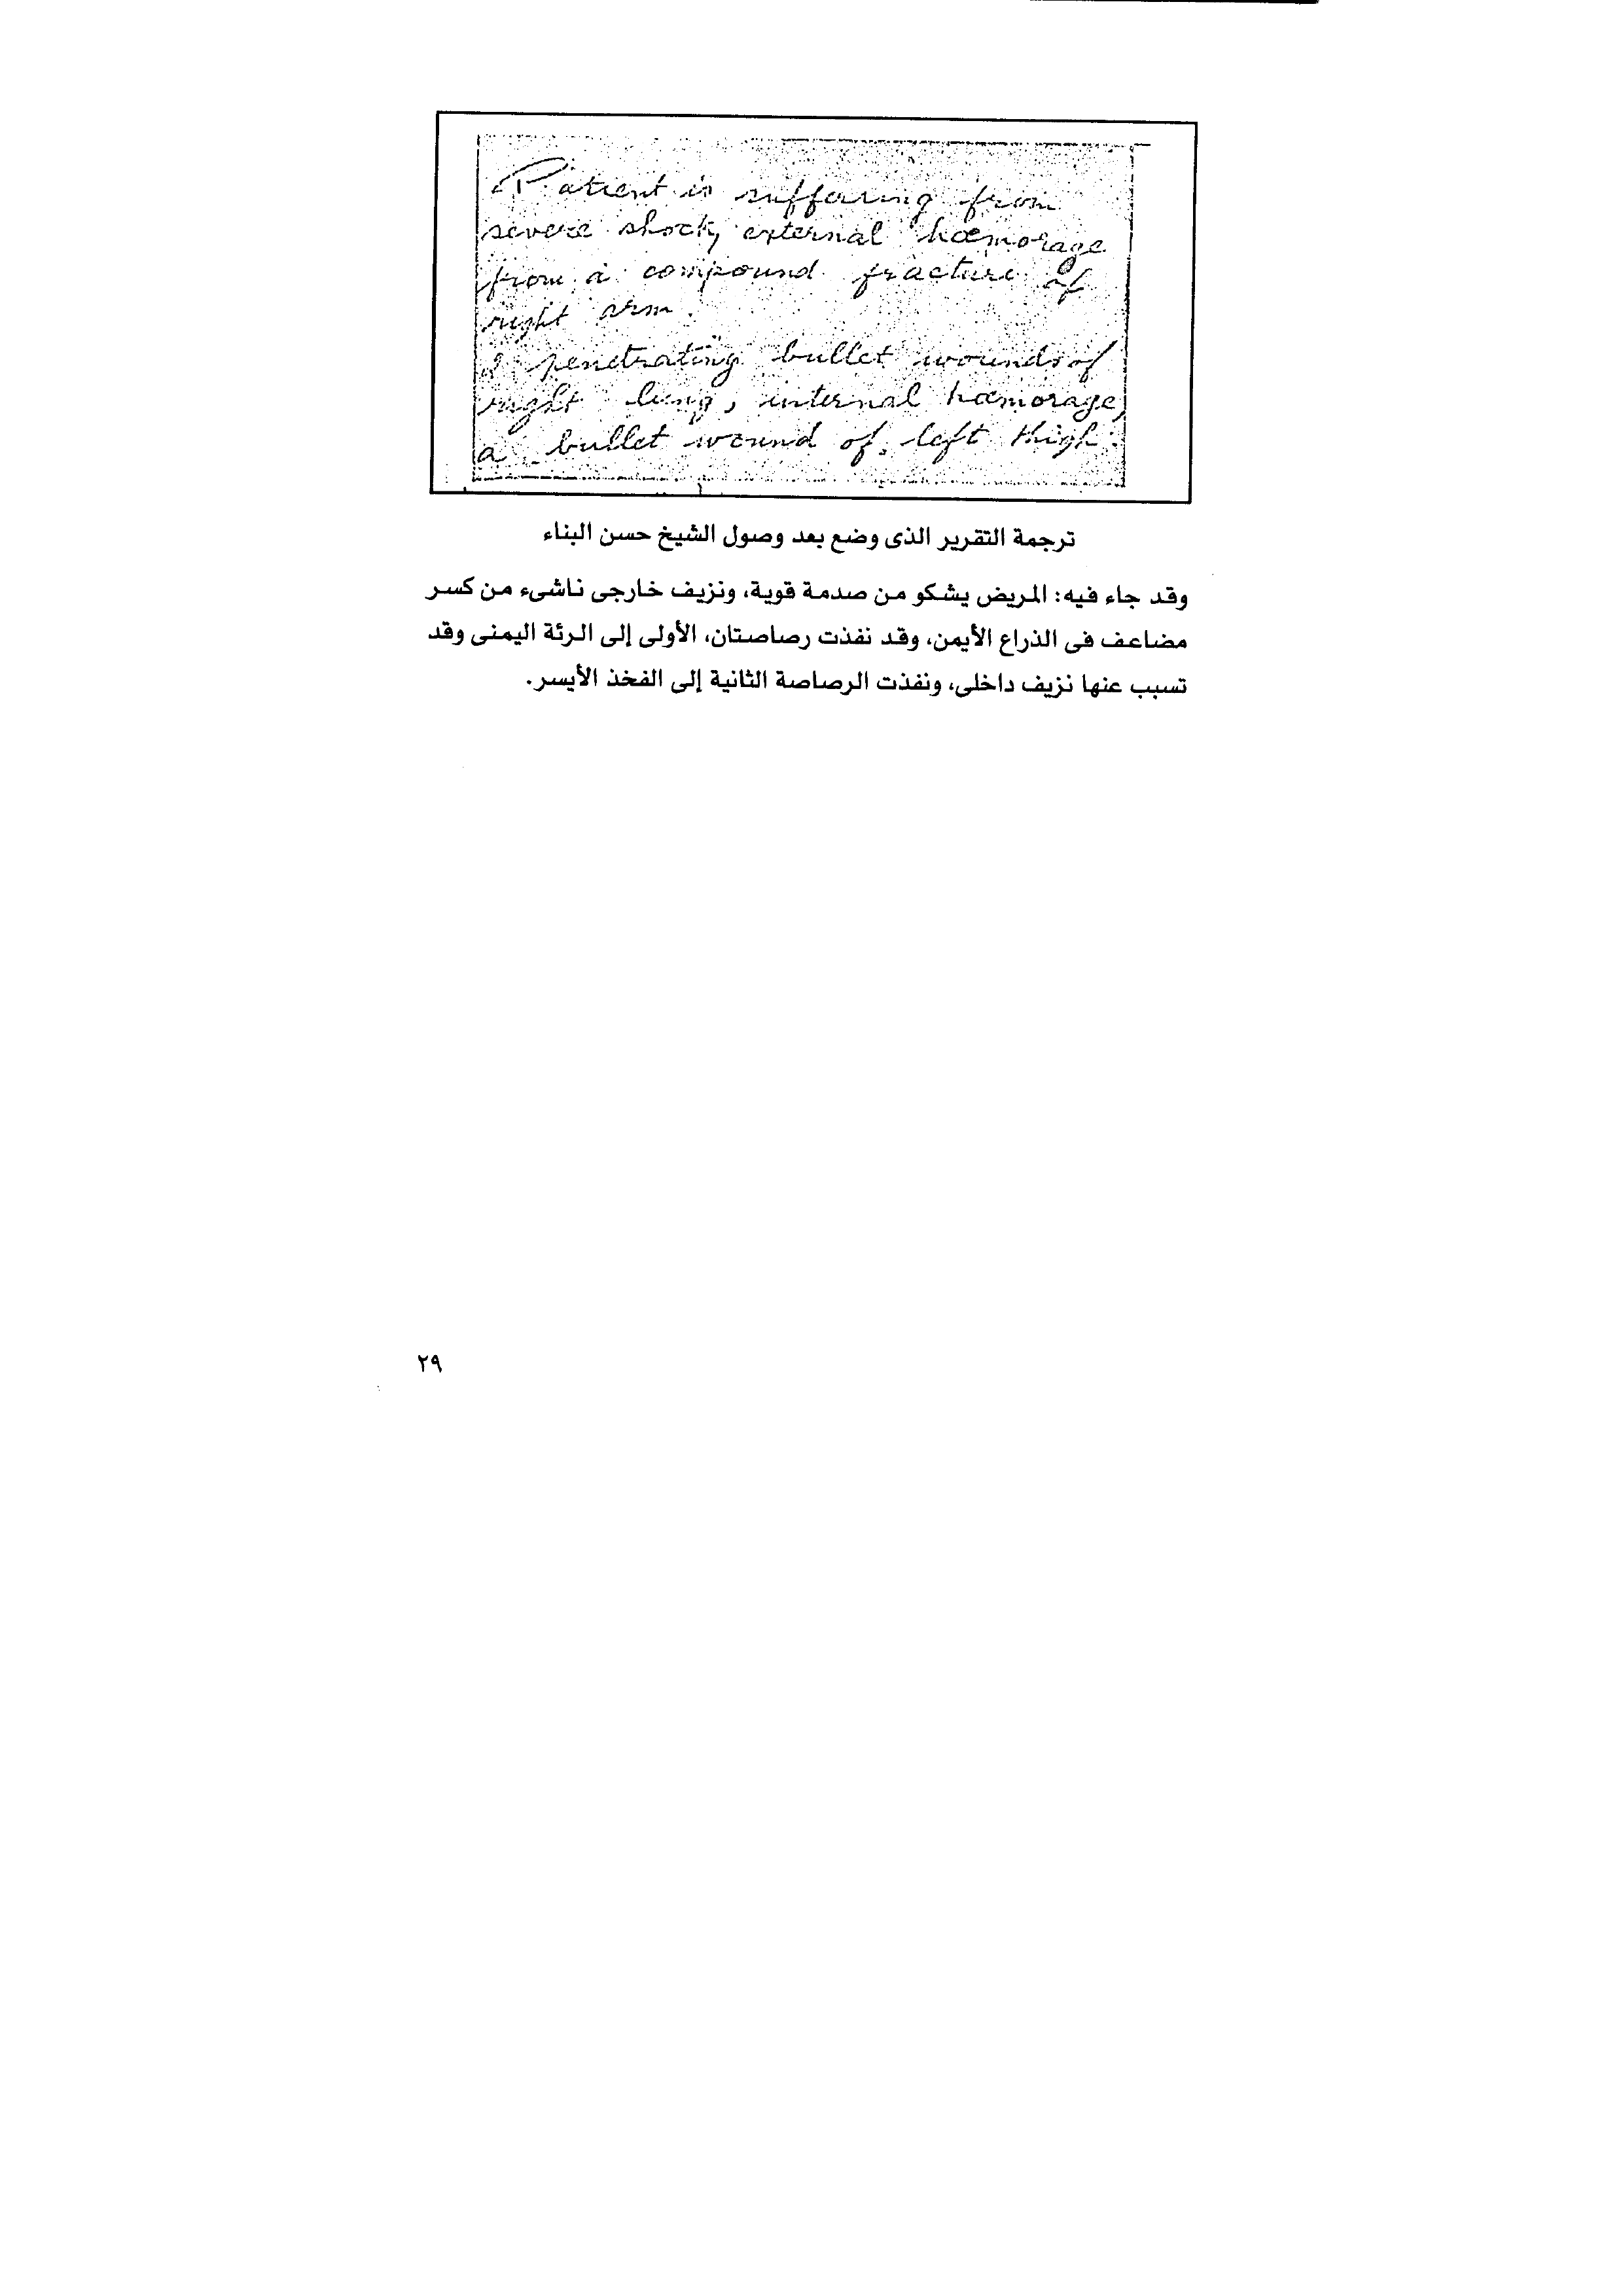 Patient is suffering from
severe shock, external hæmorage
from a compound fracture of
right arm.
2 penetrating bullet wounds of
right lung, internal hæmorage,
a bullet wound of left thigh.
ترجمة التقرير الذى وضع بعد وصول الشيخ حسن البناء
وقد جاء فيه: المريض يشكو من صدمة قوية، ونزيف خارجى ناشىء من كسر
مضاعف فى الذراع الأيمن، وقد نفذت رصاصتان، الأولى إلى الرئة اليمنى وقد
تسبب عنها نزيف داخلى، ونفذت الرصاصة الثانية إلى الفخذ الأيسر.
٢٩